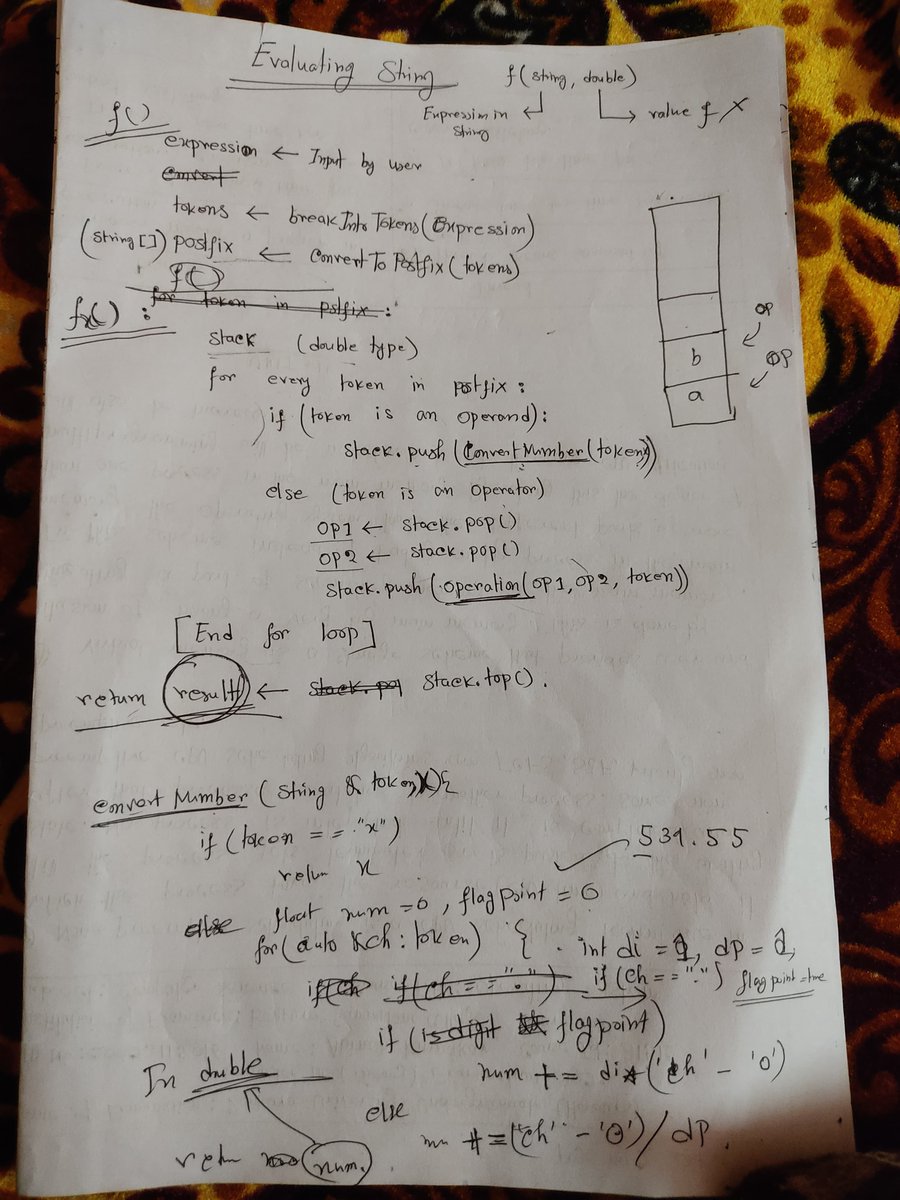 Evaluating String
f(string, double)
Expression in String
value of X
f()
expression ← Input by user
tokens ← breakIntoTokens(Expression)
(String[]) postfix ← ConvertToPostfix(tokens)
f()
for token in pstfix :
fx() :
stack (double type)
for every token in postfix :
if (token is an operand):
stack.push(ConvertNumber(token))
else (token is an operator)
op1 ← stack.pop()
op2 ← stack.pop()
stack.push(operation(op1, op2, token))
[End for loop]
return result ← stack.top().
op
b
op
a
convert Number (String & token){
if (token == "x")
return x
534.55
else float num = 0, flag point = 0
for(auto &ch : token) { int di = 1, dp = 1,
if(ch == ".") if (ch == ".") flag point = true
if (isdigit flag point)
num += di*('ch' - '0')
In double
else
('ch' - '0') / dp.
return num.